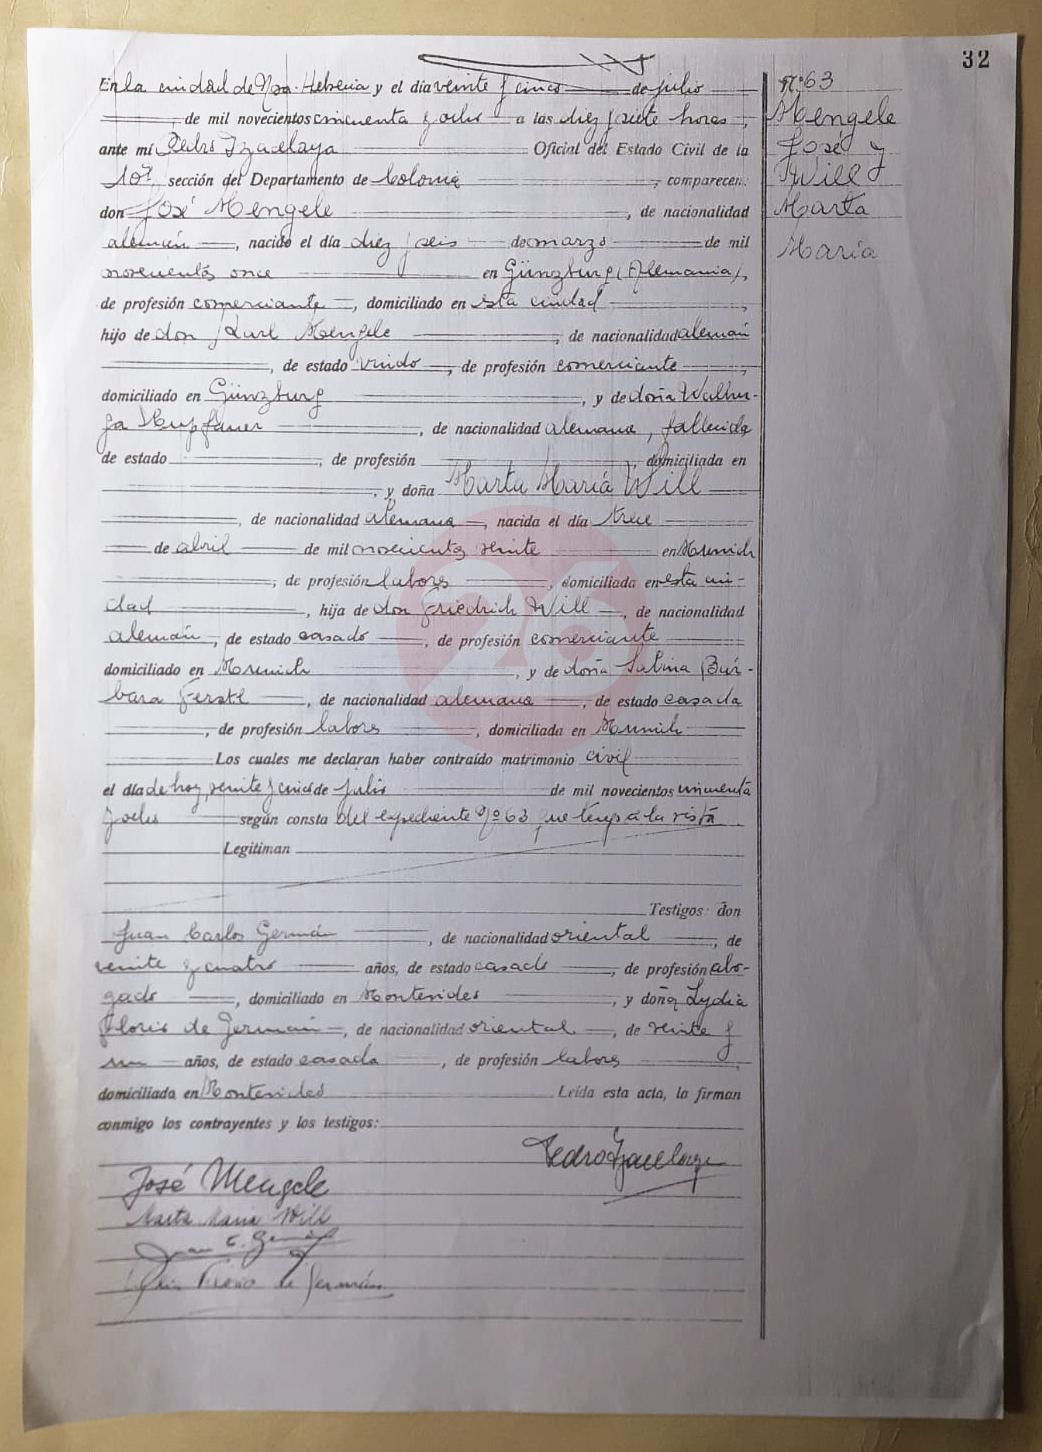 32
En la ciudad de Nva. Helvecia y el día veinte y cinco de julio
de mil novecientos cincuenta y ocho a las diez y siete horas,
ante mí Pedro Oficial del Estado Civil de la
10ª sección del Departamento de Colonia, comparecen:
don José Mengele, de nacionalidad
alemán, nacido el día diez y seis de marzo de mil
novecientos once en Günzburg (Alemania),
de profesión comerciante, domiciliado en esta ciudad
hijo de don Karl Mengele, de nacionalidad alemán
, de estado viudo, de profesión comerciante,
domiciliado en Günzburg, y de doña Walbur-
ga Hupfauer, de nacionalidad alemana, fallecida
de estado, de profesión, domiciliada en
, y doña Marta María Will
, de nacionalidad alemana, nacida el día trece
de abril de mil novecientos veinte en Munich
, de profesión labores, domiciliada en esta ciu-
dad, hija de don Friedrich Will, de nacionalidad
alemán, de estado casado, de profesión comerciante
domiciliado en Munich, y de doña Sabina Bár-
bara, de nacionalidad alemana, de estado casada
, de profesión labores, domiciliada en Munich
Los cuales me declaran haber contraído matrimonio civil
el día de hoy, veinte y cinco de julio de mil novecientos cincuenta
y ocho según consta del expediente Nº 63 que tengo a la vista
Legitiman
Testigos: don
Juan Carlos Germán, de nacionalidad oriental, de
veinte y cuatro años, de estado casado, de profesión abo-
gado, domiciliado en Montevideo, y doña Lydia
de Germán, de nacionalidad oriental, de veinte y
un años, de estado casada, de profesión labores
domiciliada en Montevideo Leída esta acta, la firman
conmigo los contrayentes y los testigos:
Pedro
José Mengele
Marta Maria Will
Juan C. Germán
de Germán
Nº 63
Mengele
José y
Will
Marta
María